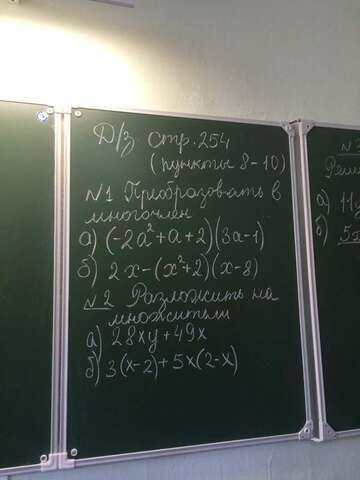 Д/з стр. 254
(пункты 8-10)
№1 Преобразовать в
многочлен
а) (-2a²+a+2)(3a-1)
б) 2x-(x²+2)(x-8)
№2 Разложить на
множители
а) 28xy+49x
б) 3(x-2)+5x(2-x)
№3
а)
б)